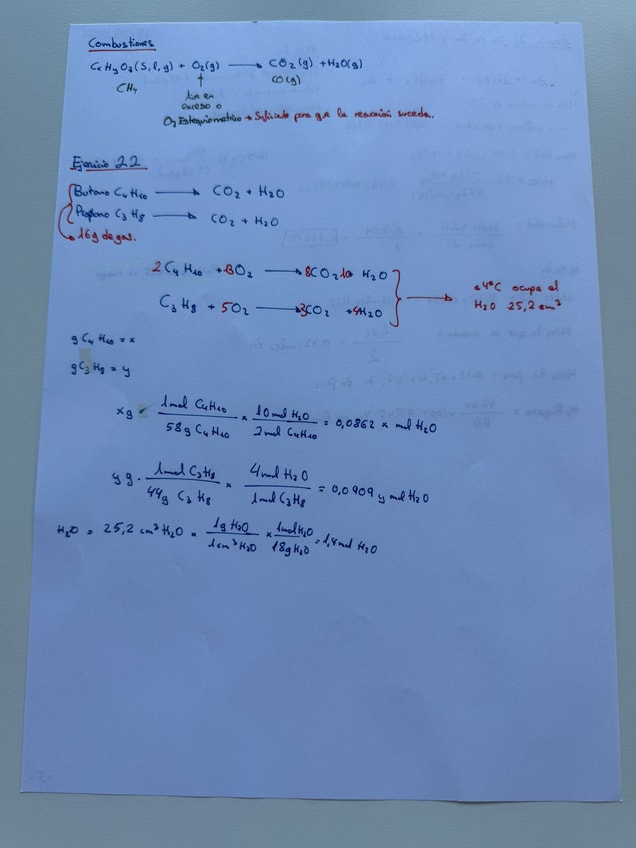 Combustiones
CxHyOz (S, l, g) + O2(g) → CO2 (g) + H2O(g)
CH4
CO(g)
Aire en
exceso o
O2 Estequiometrico → Suficiente para q la reacción suceda.
Ejercicio 22
Butano C4H10 → CO2 + H2O
Propano C3H8 → CO2 + H2O
16g de gas.
2C4H10 + 13O2 → 8CO2 10 H2O
C3H8 + 5O2 → 3CO2 + 4H2O
a 4ºC ocupa el
H2O 25,2 cm³
g C4H10 = x
g C3H8 = y
xg · 1mol C4H10 / 58g C4H10 × 10mol H2O / 2mol C4H10 = 0,0862 x mol H2O
y g · 1mol C3H8 / 44g C3H8 × 4mol H2O / 1mol C3H8 = 0,0909 y mol H2O
H2O = 25,2 cm³ H2O × 1g H2O / 1cm³ H2O × 1mol H2O / 18g H2O = 1,4 mol H2O